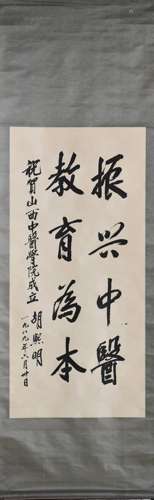 振兴中醫
教育為本
祝贺山西中醫学院成立
胡熙明
一九八九年六月廿日